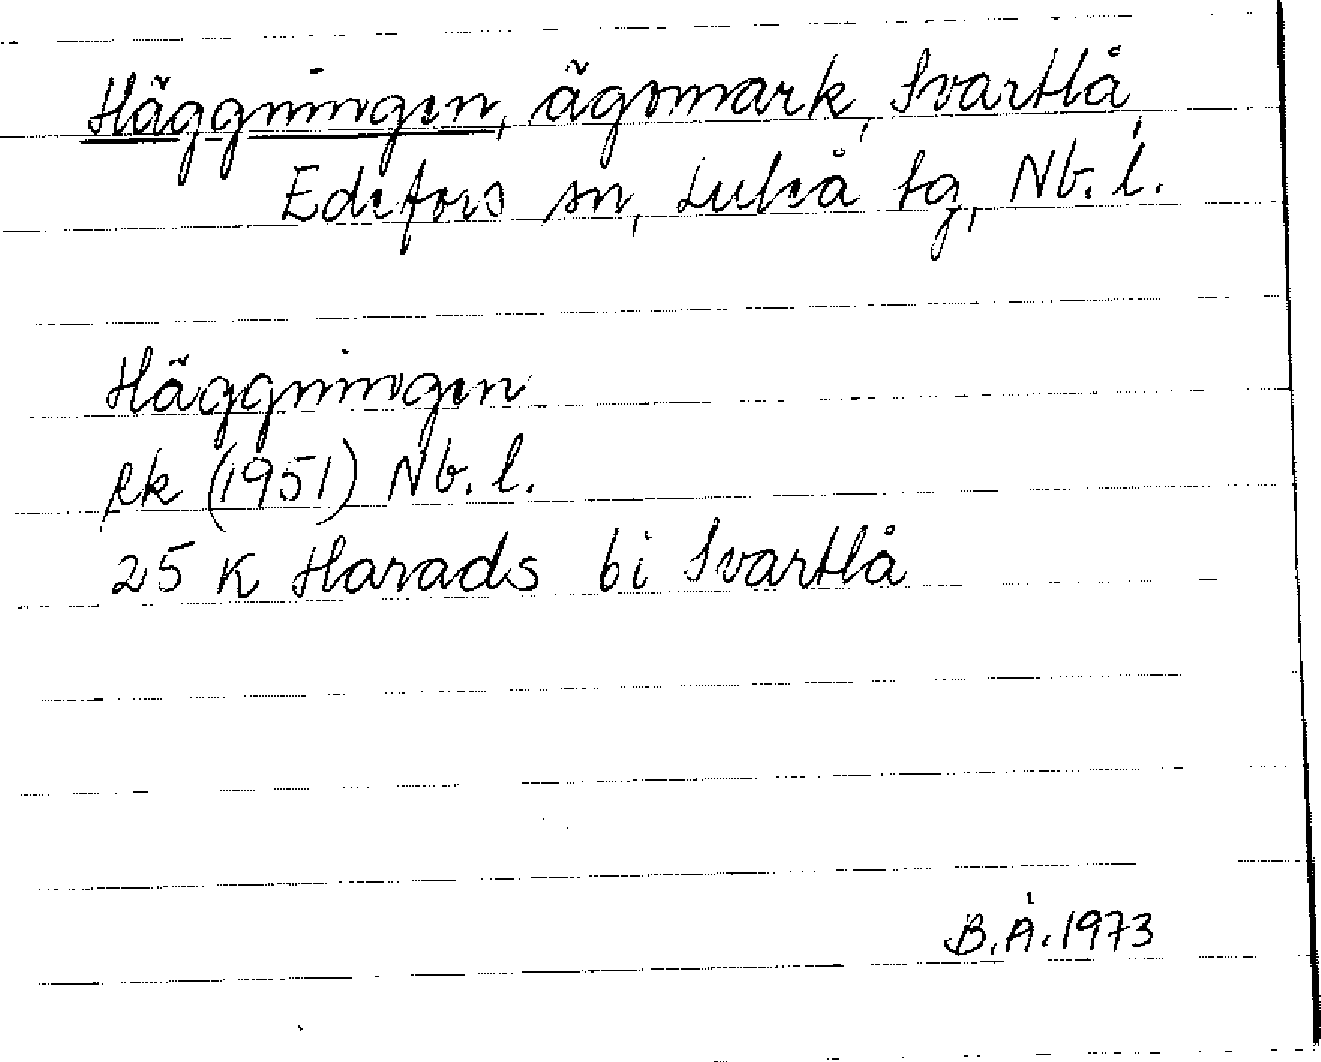 Häggningen, ägomark, Svartlå,
Edefors sn, Luleå tg, Nb. l.
Häggningen
Ek (1951) Nb. l.
25 K Harads bi Svartlå
B. Å. 1973